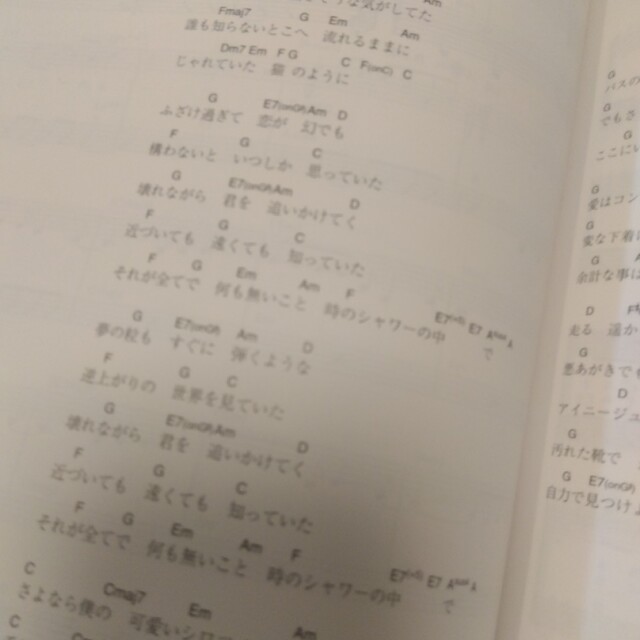 な気がしてた
Fmaj7 G Em Am
誰も知らないとこへ 流れるままに
Dm7 Em F G C F(onC) C
じゃれていた 猫のように
G E7(onG#) Am D
ふざけ過ぎて 恋が 幻でも
F G C
構わないと いつしか 思っていた
G E7(onG#) Am D
壊れながら 君を 追いかけてく
F G C
近づいても 遠くても 知っていた
F G Em Am F E7
それが全てで 何も無いこと 時のシャワーの中 で
G E7(onG#) Am D
夢の粒も すぐに 弾くような
F G C
逆上がりの 世界を見ていた
G E7(onG#) Am D
壊れながら 君を 追いかけてく
F G C
近づいても 遠くても 知っていた
F G Em Am F E7
それが全てで 何も無いこと 時のシャワーの中 で
C Cmaj7 Em Am
さよなら僕の 可愛いシロ
C
G
バスの
G
でもさ
G
ここに
G
愛はコン
G
変な下着に
G
余計な事は
D
走る 遥か
G
悪あがきでも
D
アイニージュ
G
汚れた靴で
G E7(onG#)
自力で見つけよ